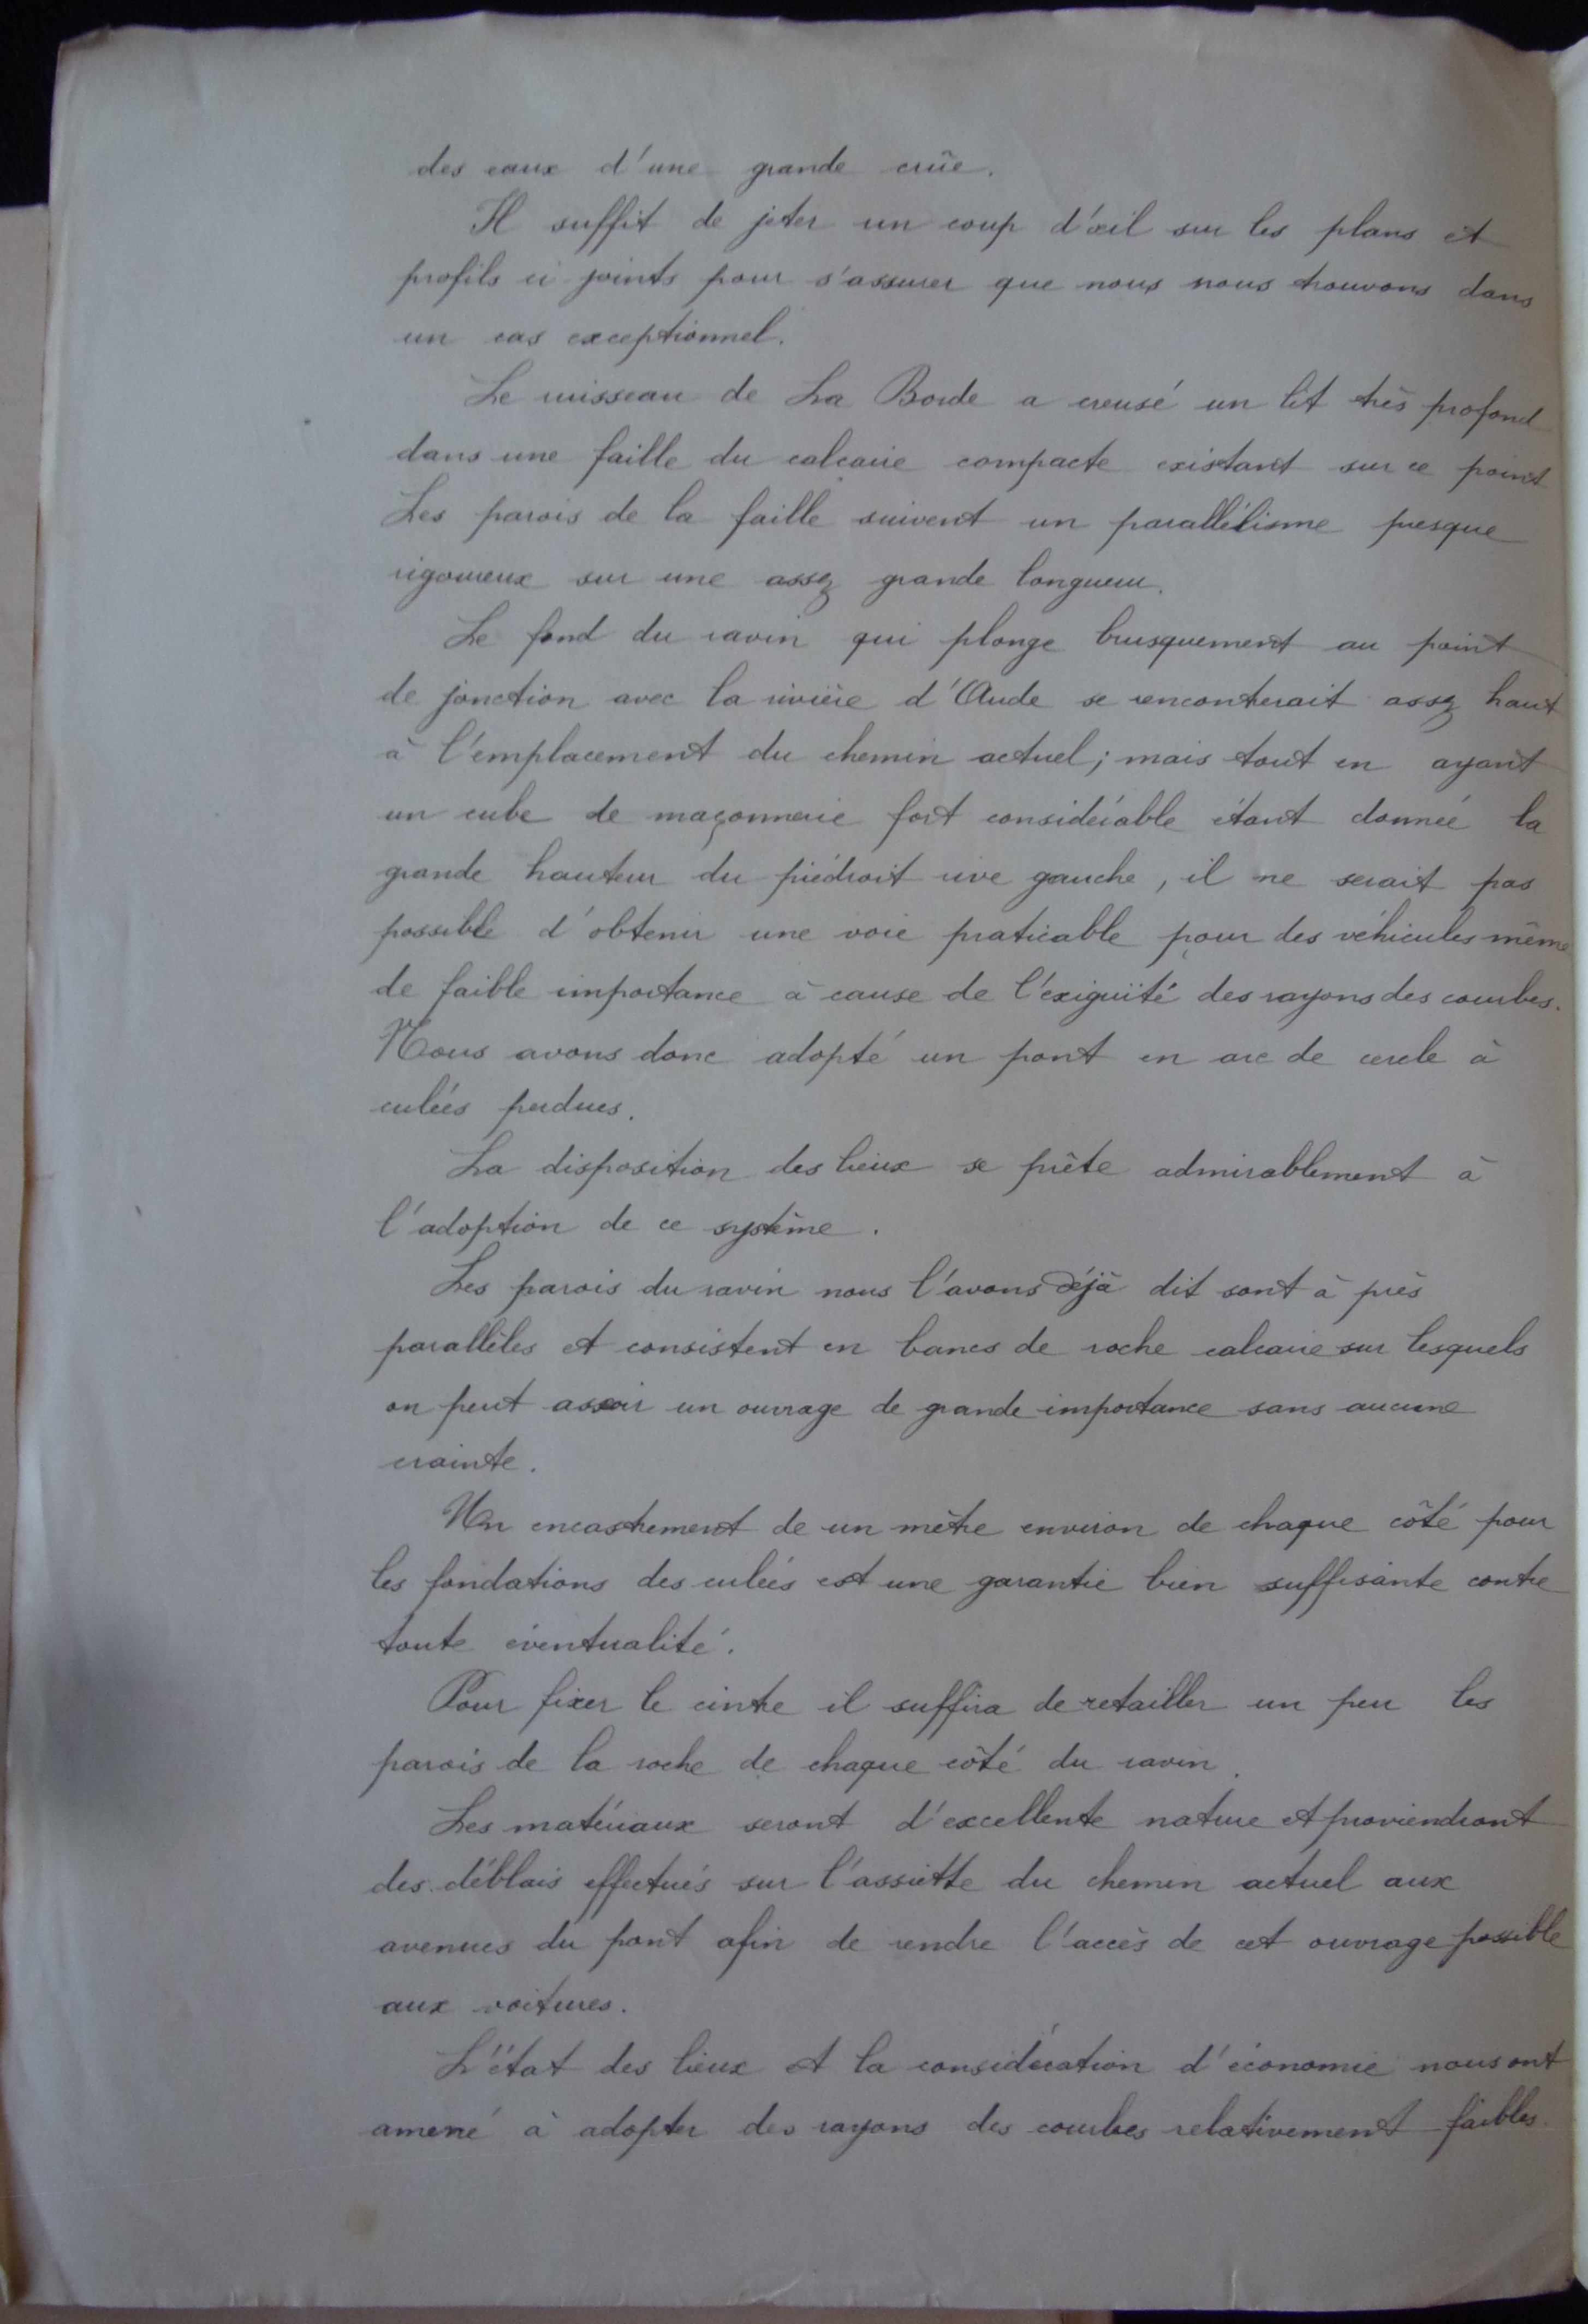 des eaux d'une grande crûe.
Il suffit de jeter un coup d'œil sur les plans et
profils ci joints pour s'assurer que nous nous trouvons dans
un cas exceptionnel.
Le ruisseau de La Borde a creusé un lit très profond
dans une faille du calcaire compacte existant sur ce point
Les parois de la faille suivent un parallélisme presque
rigoureux sur une assez grande longueur.
Le fond du ravin qui plonge brusquement au point
de jonction avec la rivière d'Aude se rencontrerait assez haut
à l'emplacement du chemin actuel ; mais tout en ayant
un cube de maçonnerie fort considérable étant donnée la
grande hauteur du piédroit rive gauche, il ne serait pas
possible d'obtenir une voie praticable pour des véhicules même
de faible importance à cause de l'exiguïté des rayons des courbes.
Nous avons donc adopté un pont en arc de cercle à
culées perdues.
La disposition des lieux se prête admirablement à
l'adoption de ce système.
Les parois du ravin nous l'avons déjà dit sont à près
parallèles et consistent en bancs de roche calcaire sur lesquels
on peut assoir un ouvrage de grande importance sans aucune
crainte.
Un encastrement de un mètre environ de chaque côté pour
les fondations des culées est une garantie bien suffisante contre
toute éventualité.
Pour fixer le cintre il suffira de retailler un peu les
parois de la roche de chaque côté du ravin.
Les matériaux seront d'excellente nature et proviendront
des déblais effectués sur l'assiette du chemin actuel aux
avenues du pont afin de rendre l'accès de cet ouvrage possible
aux voitures.
L'état des lieux et la considération d'économie nous ont
amené à adopter des rayons des courbes relativement faibles.